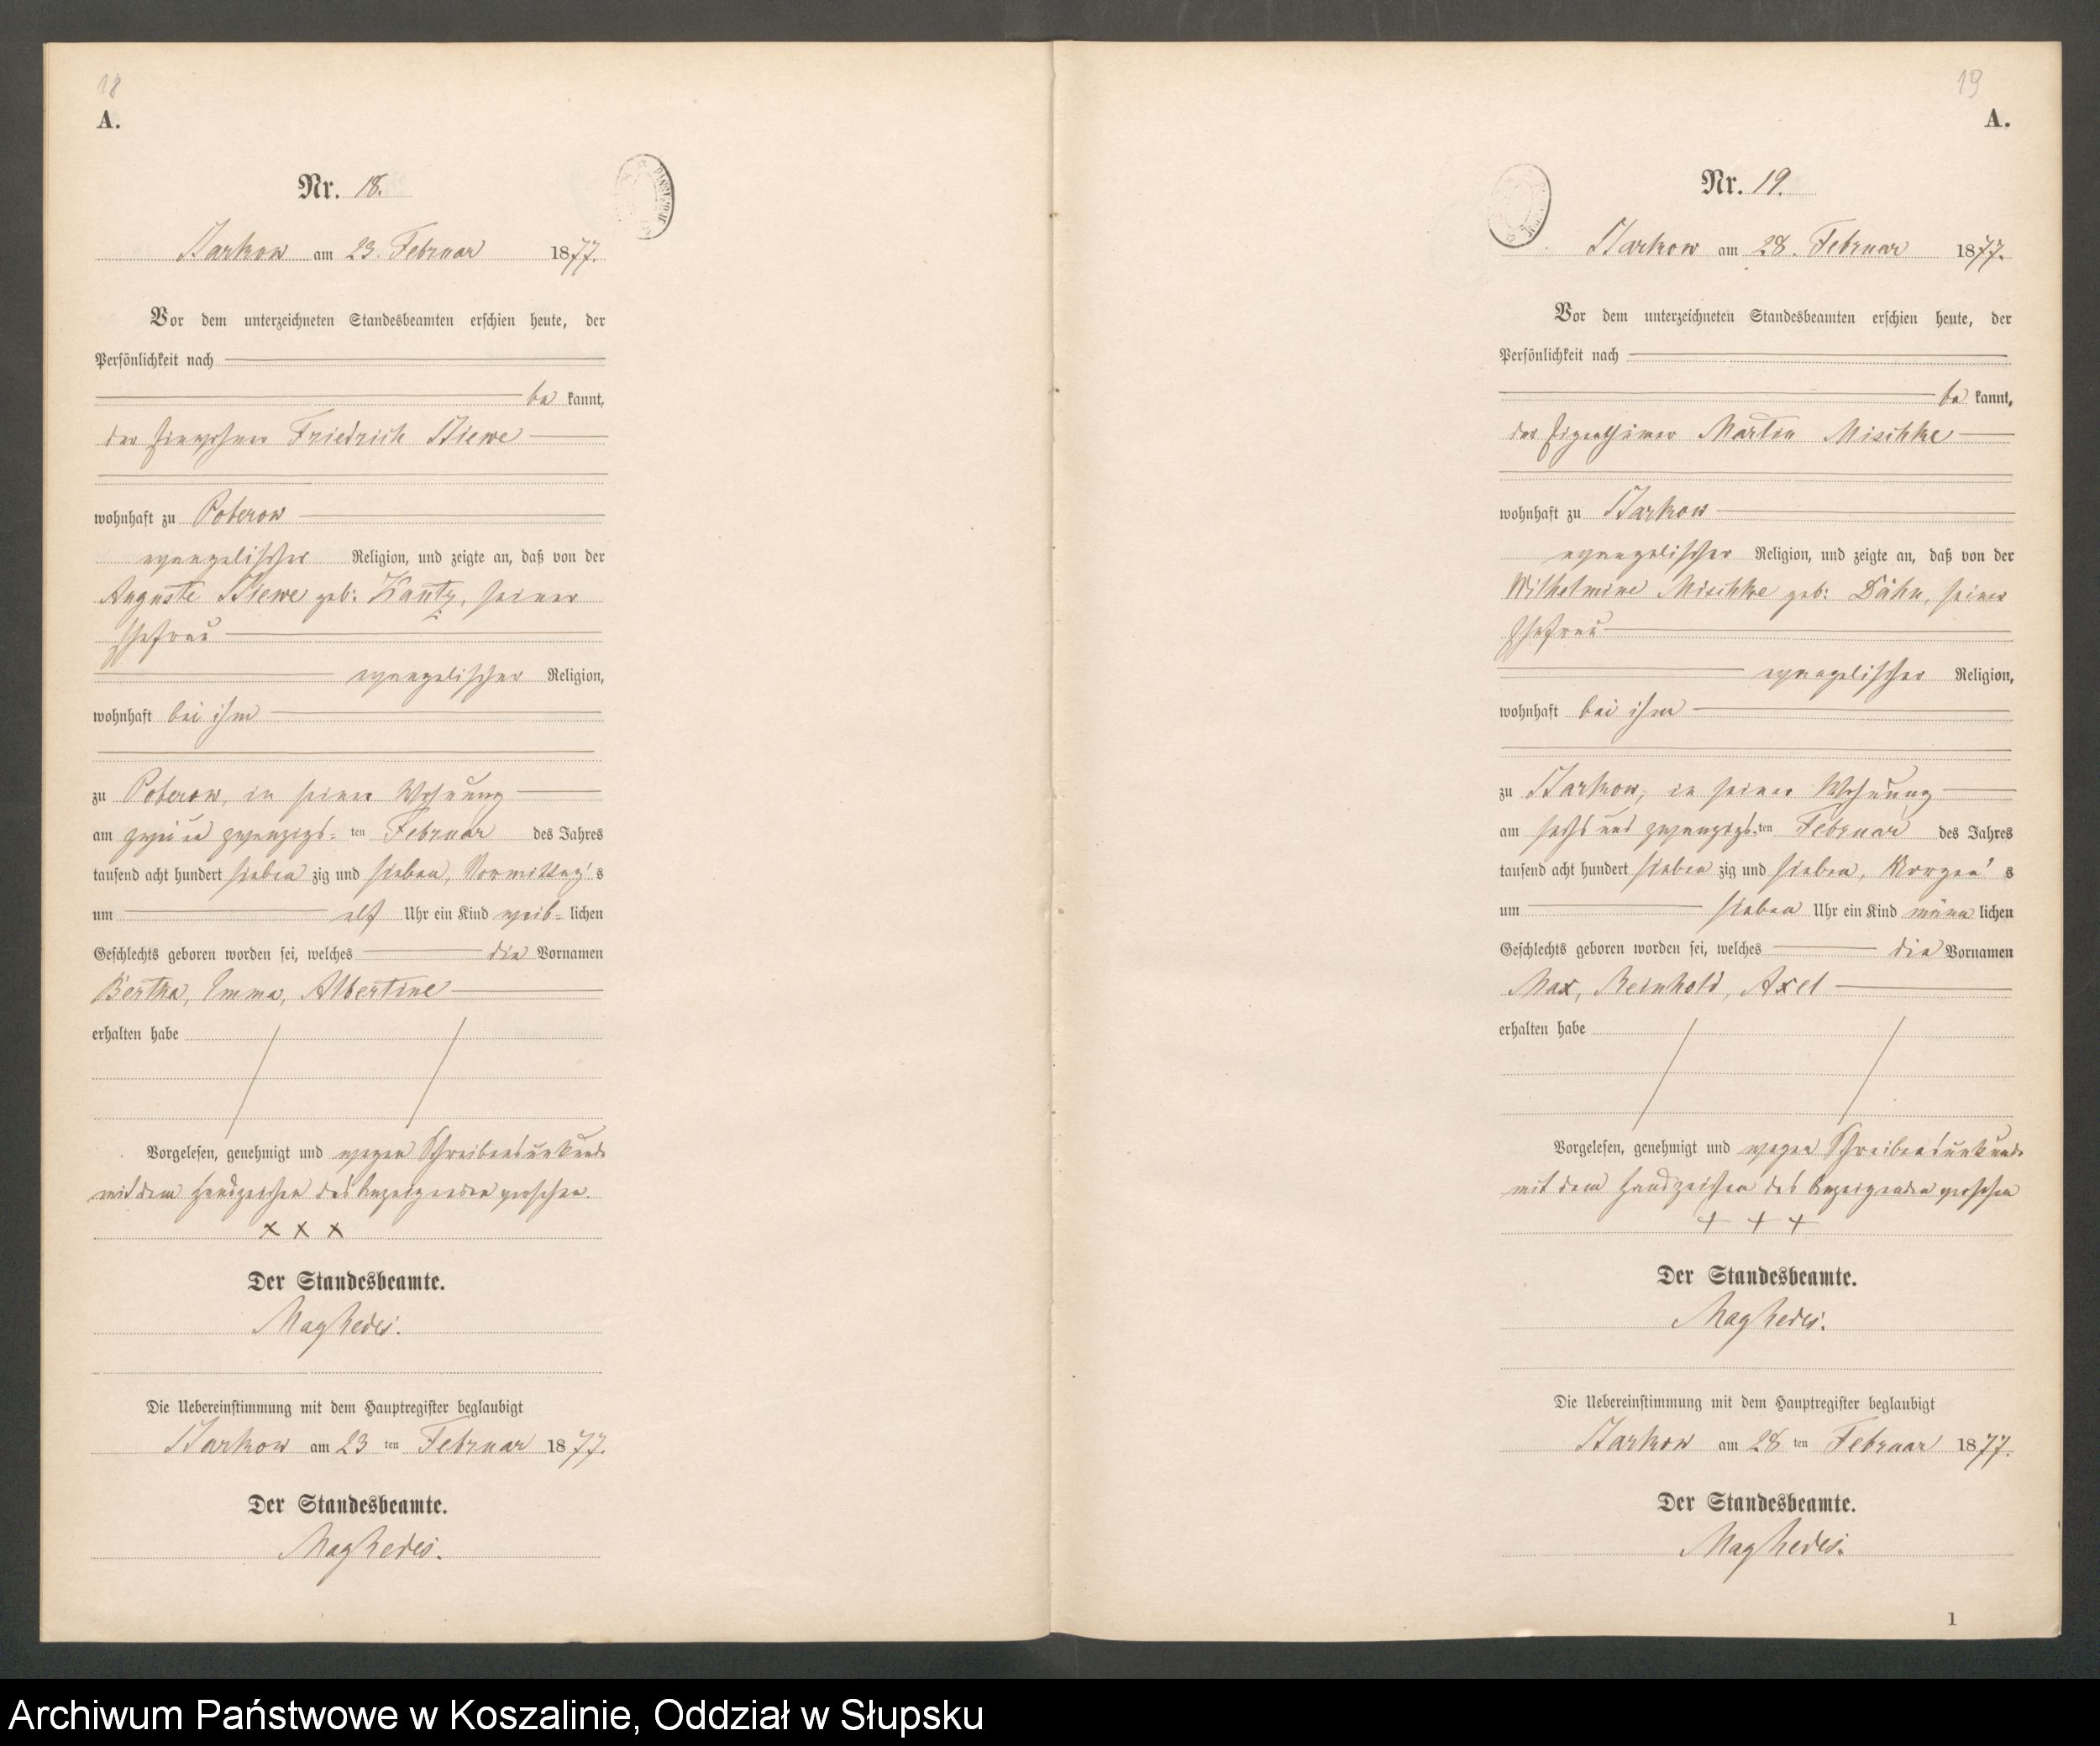 18
A.
Nr. 18.
Starkow am 23. Februar 1877.
Vor dem unterzeichneten Standesbeamten erschien heute, der
Persönlichkeit nach
be kannt,
der Einwohner Friedrich Stiewe
wohnhaft zu Poberow
evangelischer Religion, und zeigte an, daß von der
Auguste Stiewe geb: Kautz, seiner
Ehefrau
evangelischer Religion,
wohnhaft bei ihm
zu Poberow, in seiner Wohnung
am zwei und zwanzigs- ten Februar des Jahres
tausend acht hundert sieben zig und sieben, Vormittag's
um elf Uhr ein Kind weib- lichen
Geschlechts geboren worden sei, welches die Vornamen
Bertha, Emma, Albertine
erhalten habe
Vorgelesen, genehmigt und wegen Schreibensunkunde
mit dem Handzeichen des Anzeigenden versehen.
x x x
Der Standesbeamte.
Die Uebereinstimmung mit dem Hauptregister beglaubigt
Starkow am 23 ten Februar 1877.
Der Standesbeamte.
19
A.
Nr. 19.
Starkow am 28. Februar 1877.
Vor dem unterzeichneten Standesbeamten erschien heute, der
Persönlichkeit nach
be kannt,
der Eigenthümer Martin Mischke
wohnhaft zu Starkow
evangelischer Religion, und zeigte an, daß von der
Wilhelmine Mischke geb: Dähn, seiner
Ehefrau
evangelischer Religion,
wohnhaft bei ihm
zu Starkow, in seiner Wohnung
am sechs und zwanzigs- ten Februar des Jahres
tausend acht hundert sieben zig und sieben, Morgen's
um sieben Uhr ein Kind männ lichen
Geschlechts geboren worden sei, welches die Vornamen
Max, Reinhold, Axel
erhalten habe
Vorgelesen, genehmigt und wegen Schreibensunkunde
mit dem Handzeichen des Anzeigenden versehen
+ + +
Der Standesbeamte.
Die Uebereinstimmung mit dem Hauptregister beglaubigt
Starkow am 28 ten Februar 1877.
Der Standesbeamte.
1
Archiwum Państwowe w Koszalinie, Oddział w Słupsku